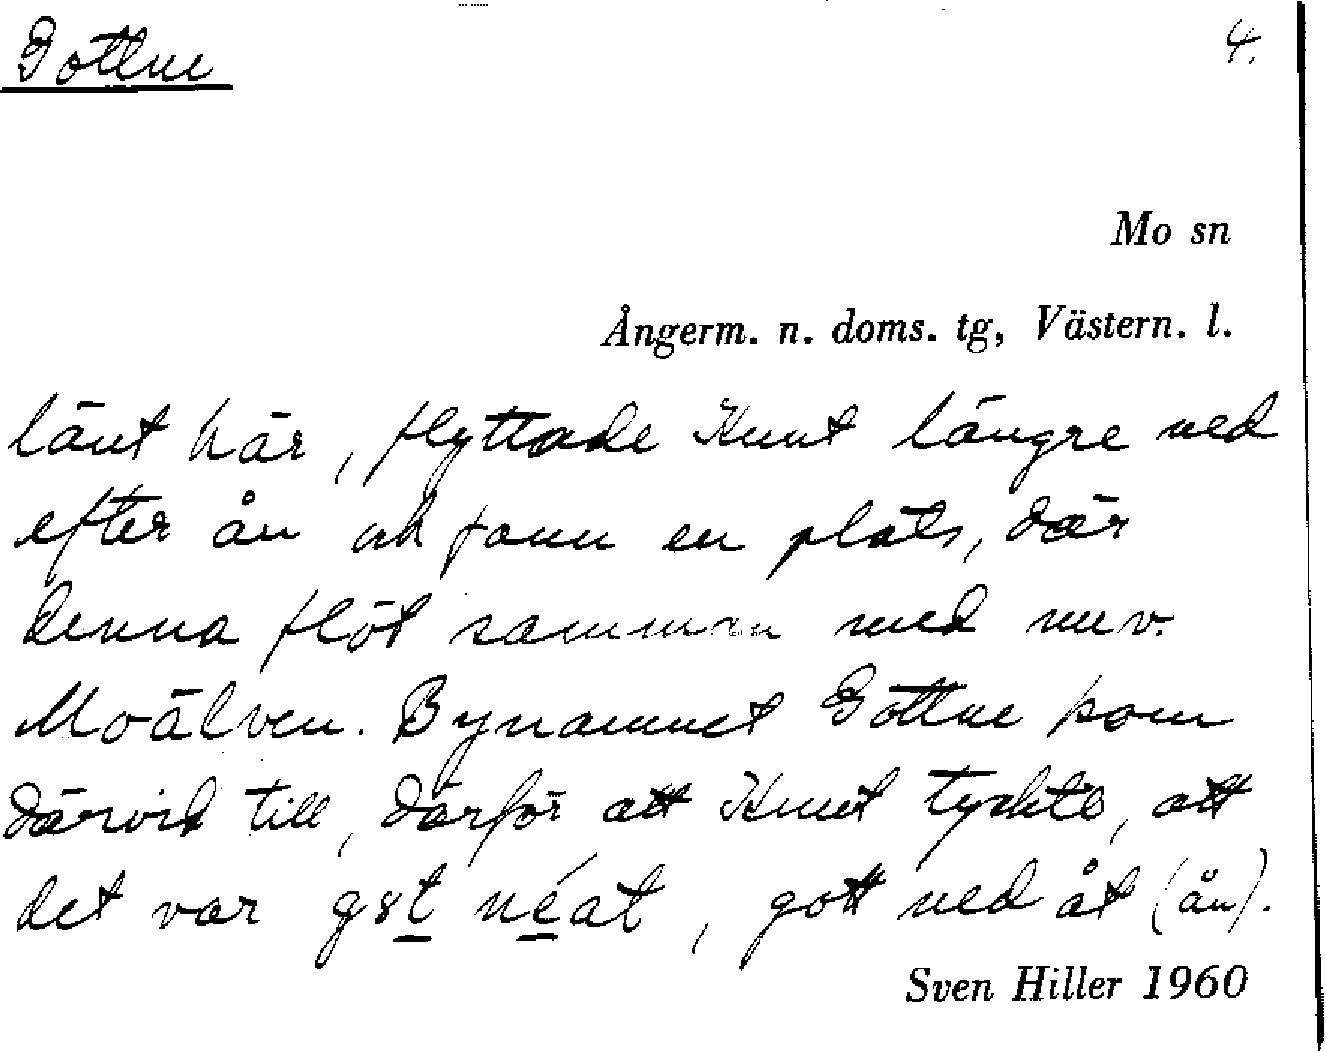 Gottne
4.
Mo sn
Ångerm. n. doms. tg, Västern. l.
länt här, flyttade Knut längre ned
efter ån och fann en plats, där
denna flöt samman med nuv.
Moälven. Bynamnet Gottne kom
därvid till, därför att Knut tyckte, att
det var g8t néat, gott ned åt (ån).
Sven Hiller 1960